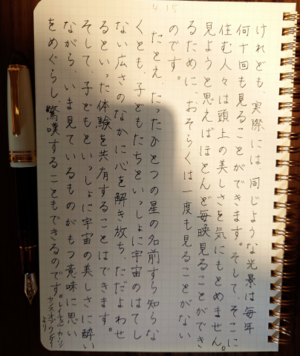 けれども、実際には、同じような光景は毎年
何十回も見ることができます。そして、そこに
住む人々は頭上の美しさを気にもとめません。
見ようと思えばほとんど毎晩見ることができ
るために、おそらくは一度も見ることがない
のです。
たとえ、たったひとつの星の名前すら知らな
くとも、子どもたちといっしょに宇宙のはてし
ない広さのなかに心を解き放ち、ただよわせ
るといった体験を共有することはできます。
そして、子どもといっしょに宇宙の美しさに酔い
ながら、いま見ているものがもつ意味に思い
をめぐらし、驚嘆することもできるのです。
レイチェル・カーソン
センス・オブ・ワンダー
より